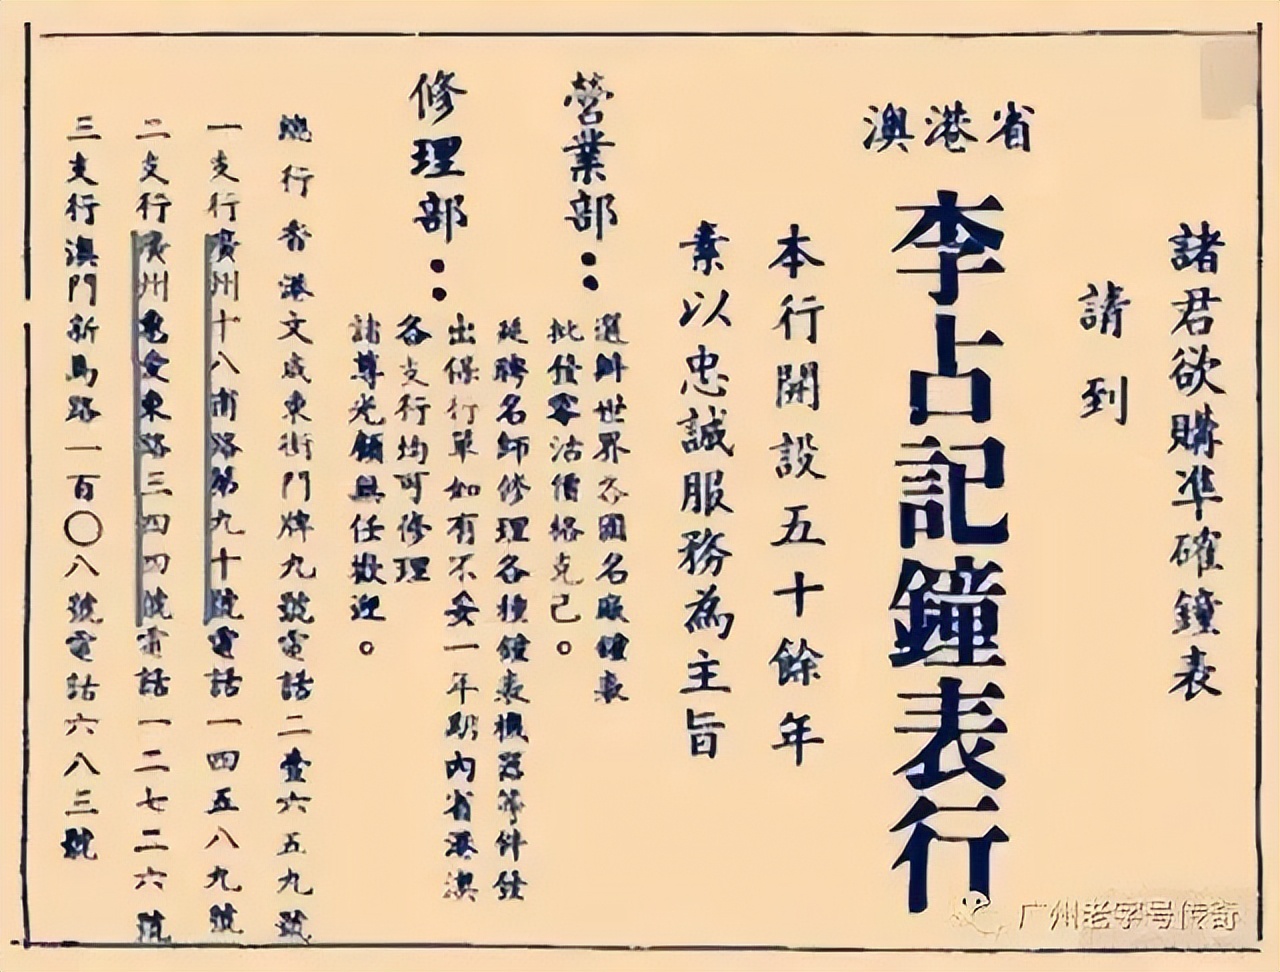 諸君欲購準確鐘表
請到
省港澳
李占記鐘表行
本行開設五十餘年
素以忠誠服務為主旨
營業部：
選辦世界各國名廠鐘表
批發零沽價格克己。
修理部：
延聘名師修理各種鐘表機器等件發
出保行單如有不妥一年期內省港澳
各支行均可修理
諸尊光顧無任歡迎。
總行香港文咸東街門牌九號電話二壹六五九號
一支行廣州十八甫路第九十號電話一四五八九號
二支行廣州惠愛東路三四四號電話一二七二六號
三支行澳門新馬路一百〇八號電話六八三號
广州老字号传奇